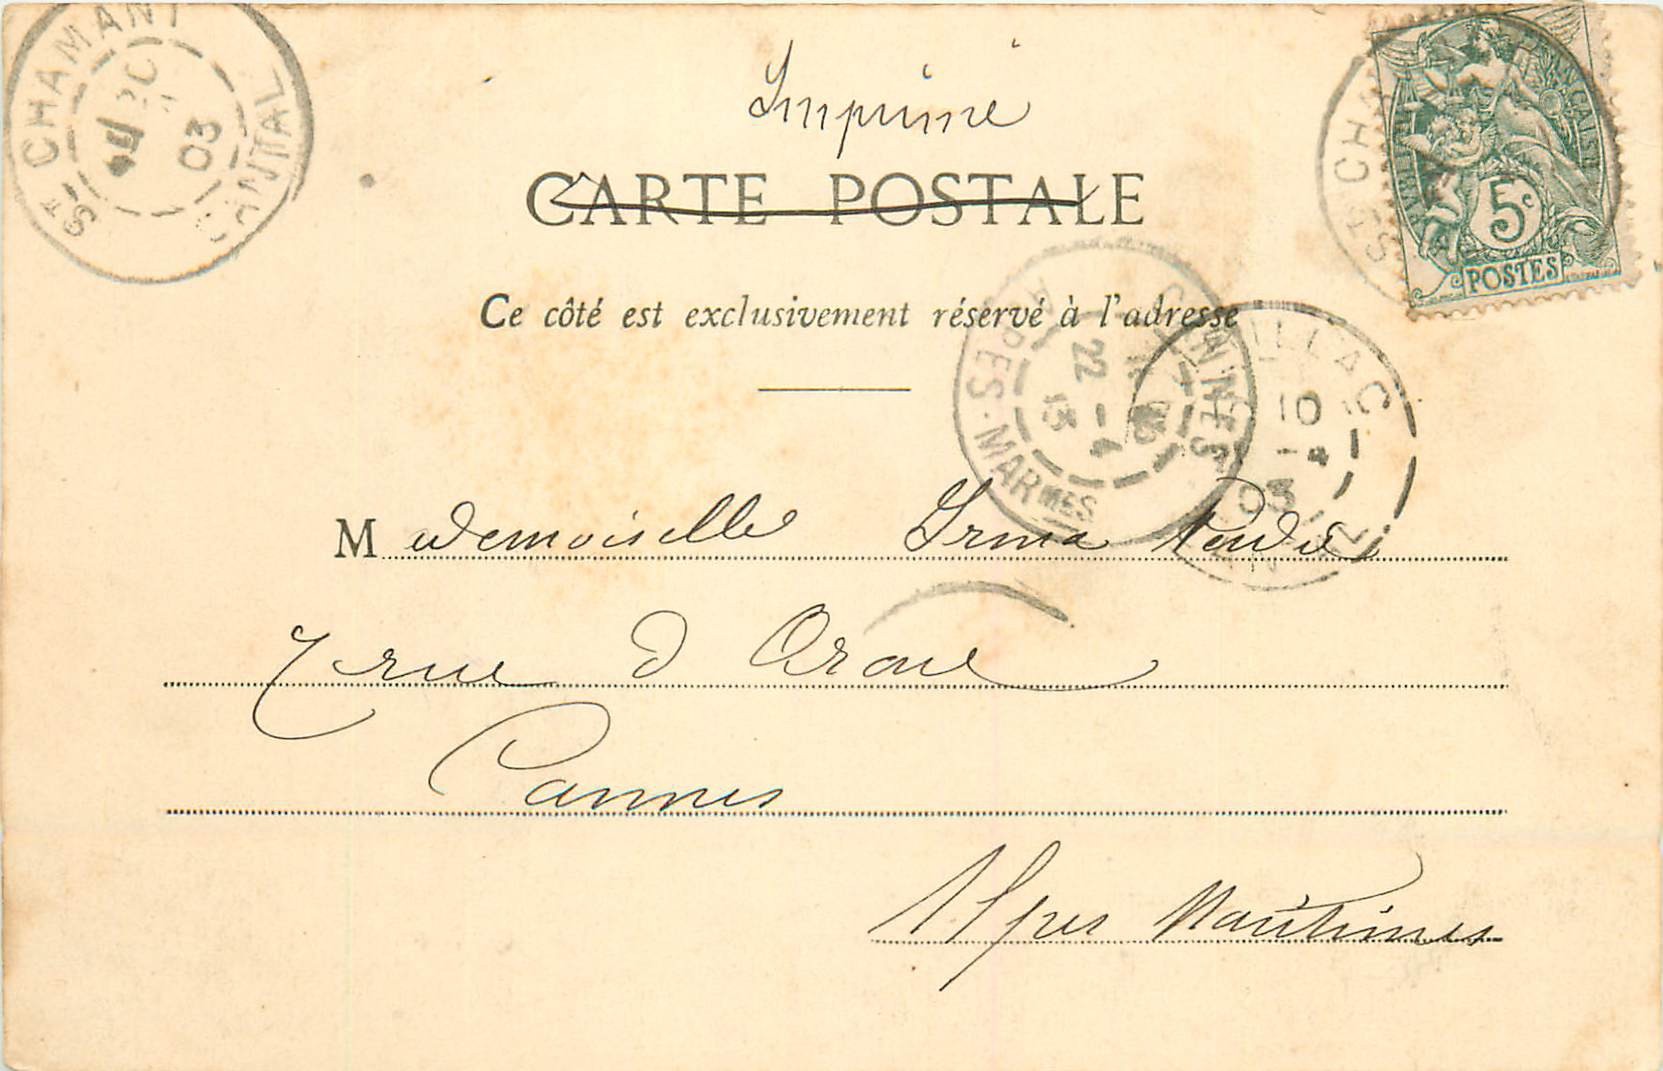 Imprimé
CARTE POSTALE
Ce côté est exclusivement réservé à l'adresse
Mademoiselle Irma
7 rue d'Oran
Cannes
Alpes Maritimes
ST CHAMANT
CANTAL
03
ST CHA
RÉPUBLIQUE FRANÇAISE
5c
POSTES
CANNES
ALPES-MARMES
22
4
03
ILLAC
10
4
03